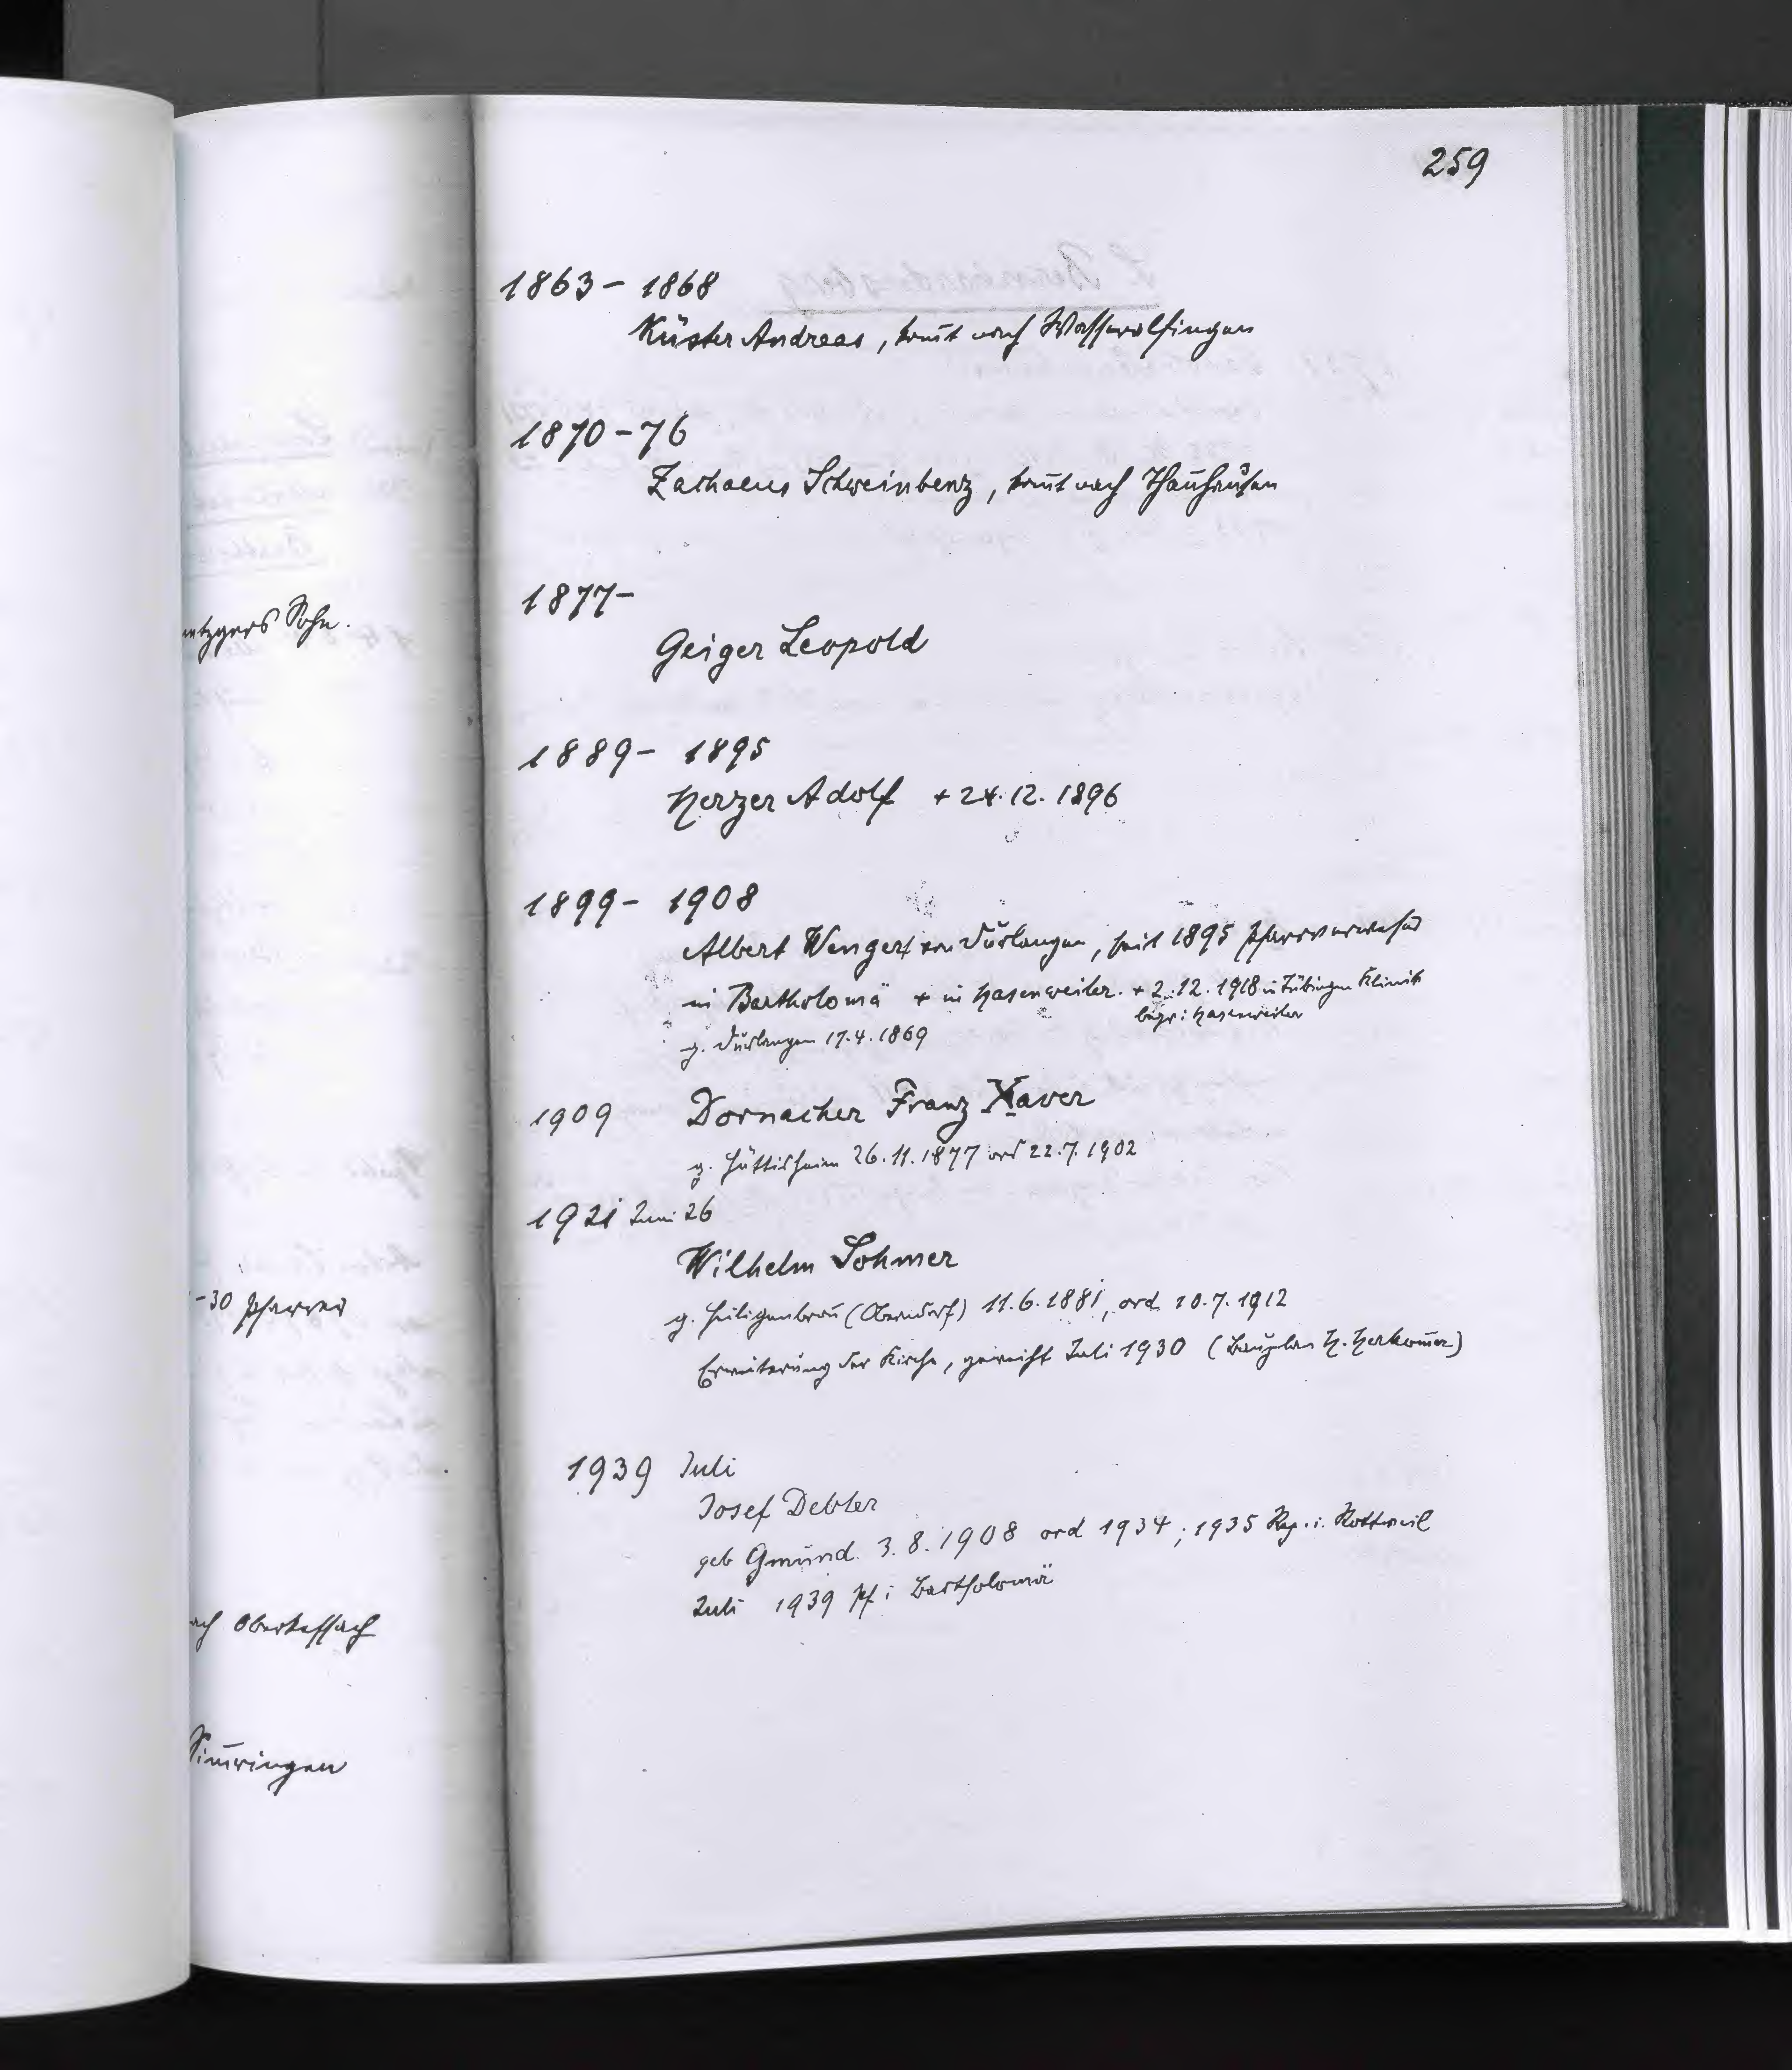 259
1863 - 1868
Küster Andreas, komt nach Wasseralfingen
1870 - 76
Zachaeus Schweinbenz, komt nach Thanhausen
1877 -
Geiger Leopold
1889 - 1895
Herzer Adolf + 24.12.1896
1899 - 1908
Albert Wengert von Durlangen, seit 1895 Pfarrverweser
in Bartholomä + in Hasenweiler. + 2.12.1918 in Tübingen Klinik
begr: Hasenweiler
g. Durlangen 17.4.1869
1909 Dornacher Franz Xaver
g. Hüttisheim 26.11.1877 ord 22.7.1902
1921 Juni 26
Wilhelm Sohmer
g. Heiligenbron (Oberndorf) 11.6.1881, ord. 10.7.1912
Erweiterung der Kirche, geweiht Juli 1930 (Bauplan H. Herkomer)
1939 Juli
Josef Debler
geb Gmünd. 3.8.1908 ord 1934; 1935 Kap. i. Rottweil
Juli 1939 Pf i Bartholomä
Sohn.
-30 Pfarrer
Oberkessach
Simringen